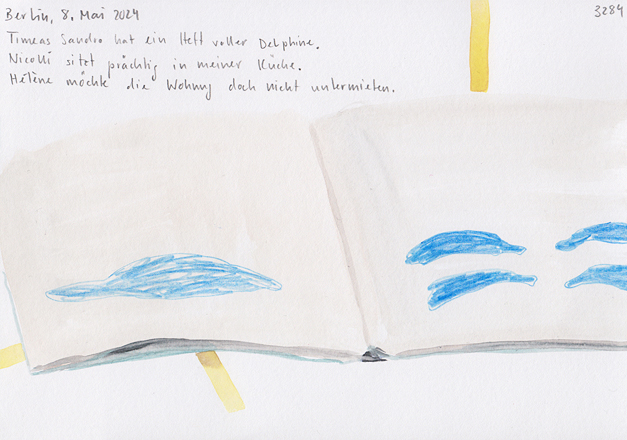 Berlin, 8. Mai 2024
3284
Timeas Sandro hat ein Heft voller Delphine.
Nicolli sitzt prächtig in meiner Küche.
Hélène möchte die Wohnung doch nicht untermieten.